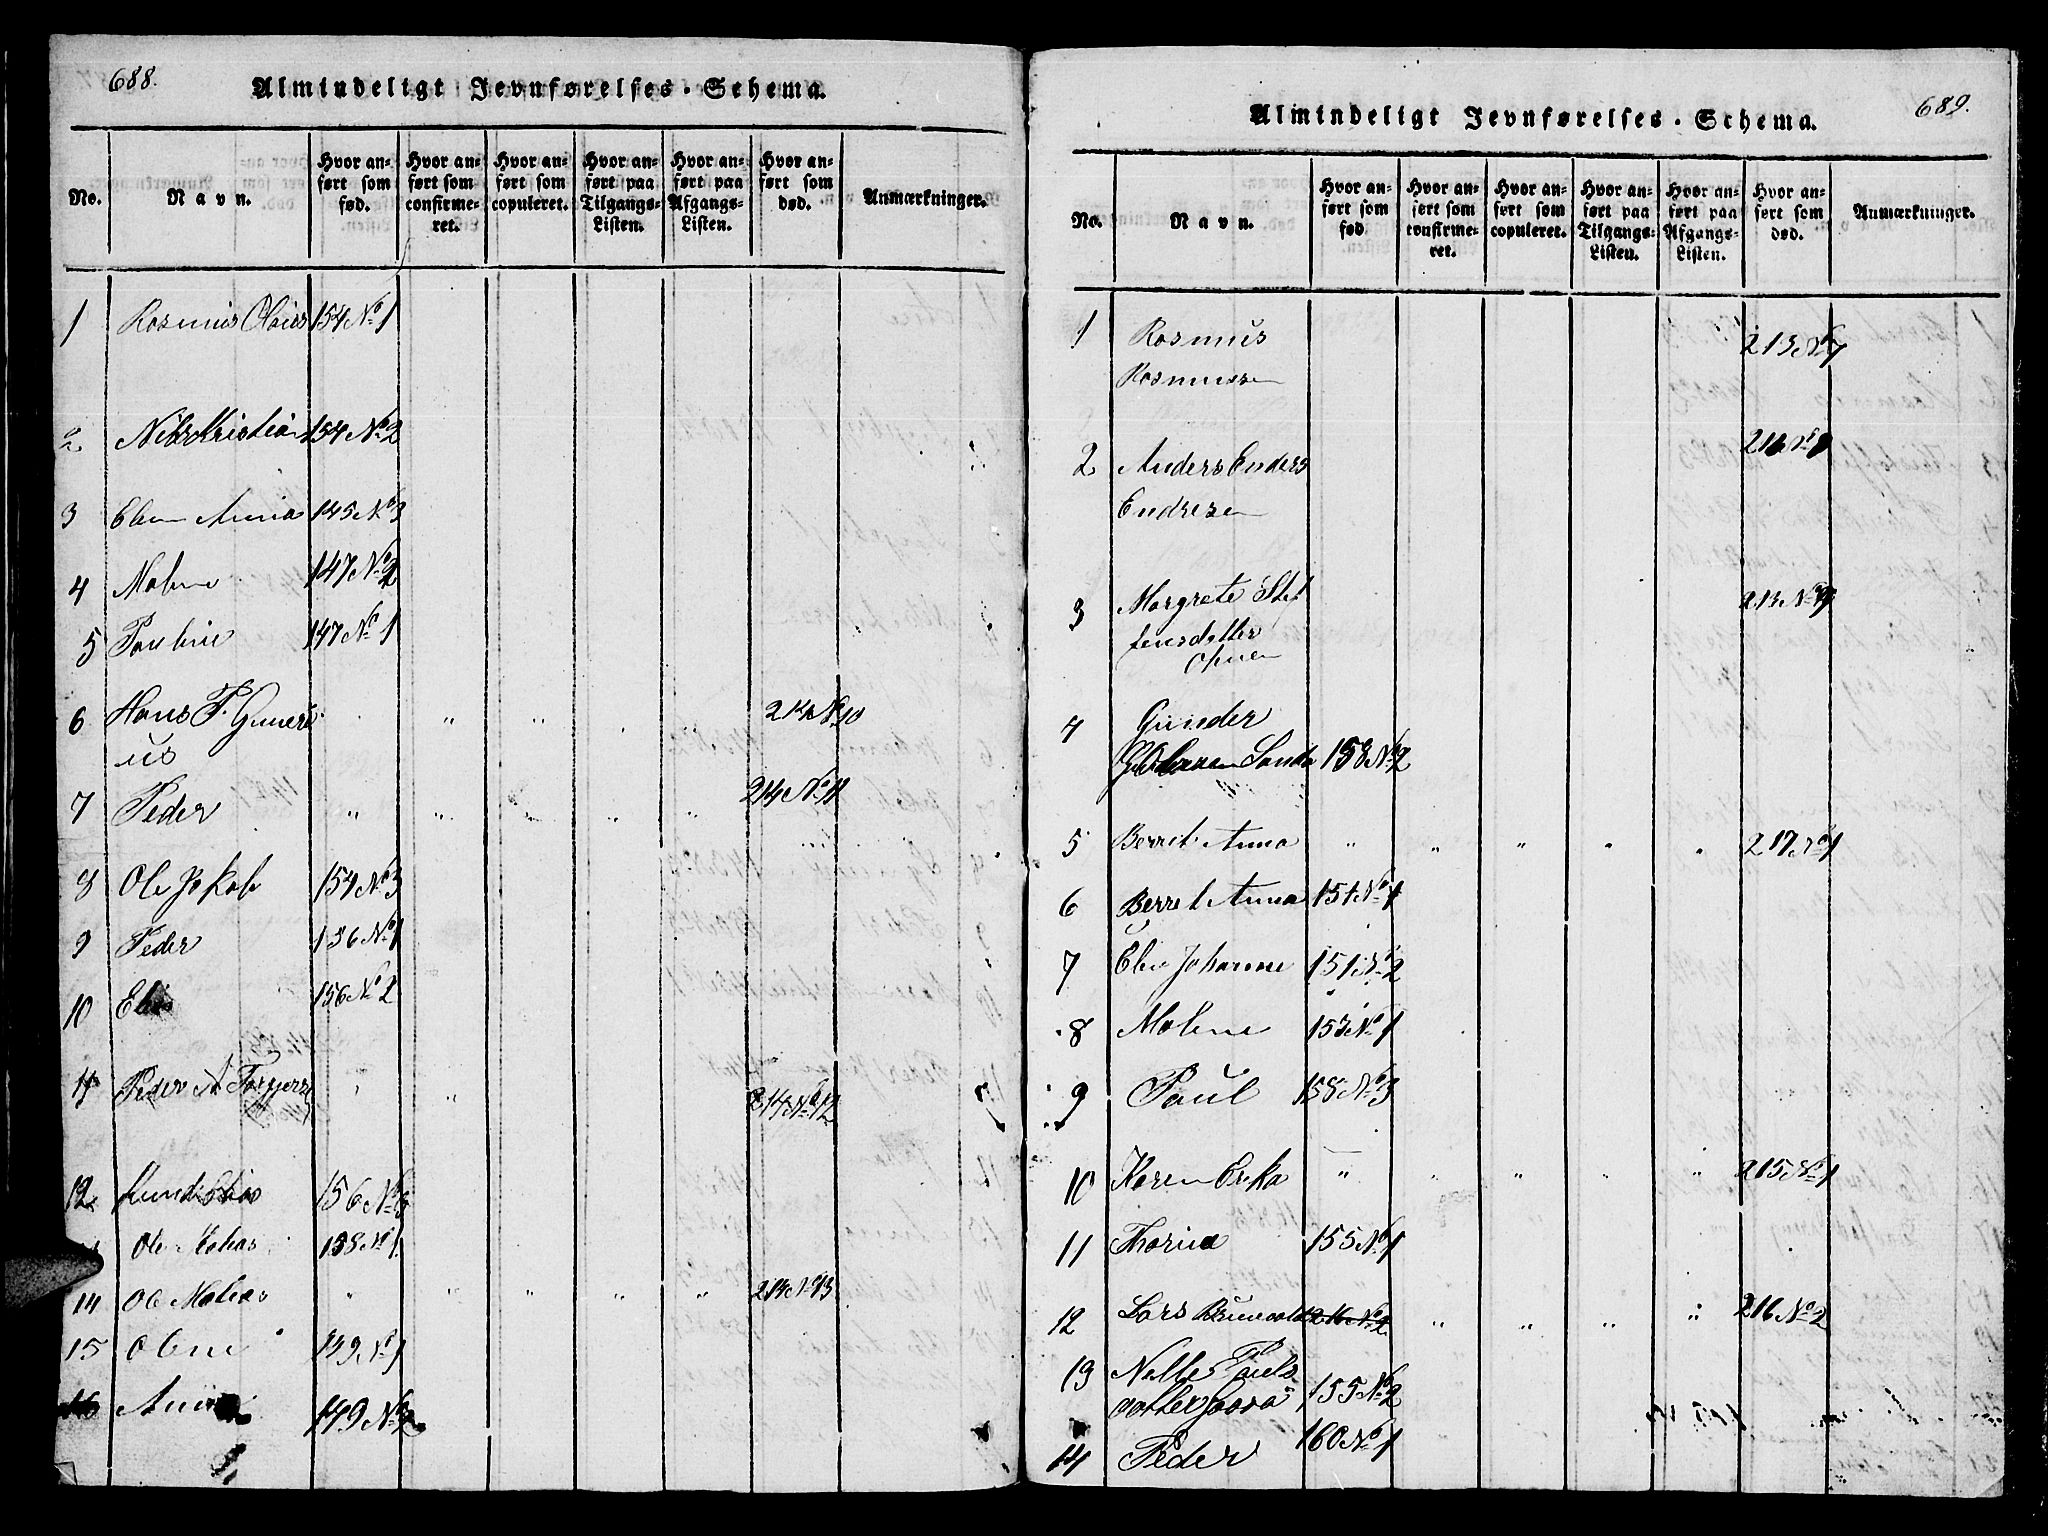 688.
Almindeligt Jevnførelses-Schema.
No.
Navn.
Hvor anført som fød.
Hvor anført som confirmeret.
Hvor anført som copuleret.
Hvor anført paa Tilgangs-Listen.
Hvor anført paa Afgangs-Listen.
Hvor anført som død.
Anmærkninger.
1 Rasmus 154 No 1
2 Nils Kristian 154 No 2
3 Elen Anna 145 No 3
4 Malene 147 No 2
5 Pauline 147 No 1
6 Hans P. Gunneri
us
7 Peder " " " " " 214 No 11
8 Ole Jakob 154 No 3
9 Peder 156 No 1
10 156 No 2
11 Peder A
214 No 12
12 156 No 3
Ole 158 No 1
14 Ole Matias " " " " " 214 No 13
15 Oline 149 No 1
16 149 No 2
689.
Almindeligt Jevnførelses-Schema.
No.
Navn.
Hvor anført som fød.
Hvor anført som confirmeret.
Hvor anført som copuleret.
Hvor anført paa Tilgangs-Listen.
Hvor anført paa Afgangs-Listen.
Hvor anført som død.
Anmærkninger.
1 Rasmus 213 No 7
Rasmusen
2 Anders Enders 216 No 1
Endresen
3 Margrete Stef
fensdatter
4 Gunder
Sanda 158 No 2
5 Berret Anna " " " " " 217 No 1
6 Berret Anna 151 No 1
7 Elen Johanne 151 No 2
8 Malene 153 No 1
9 Paul 158 No 3
10 Karen Erika " " " " " 215 No 1
11 Thorina 155 No 1
12 Lars 216 No 2 " " " " 216 No 2
13 Nelle Pauls
datter 155 No 2
14 Peder 160 No 1